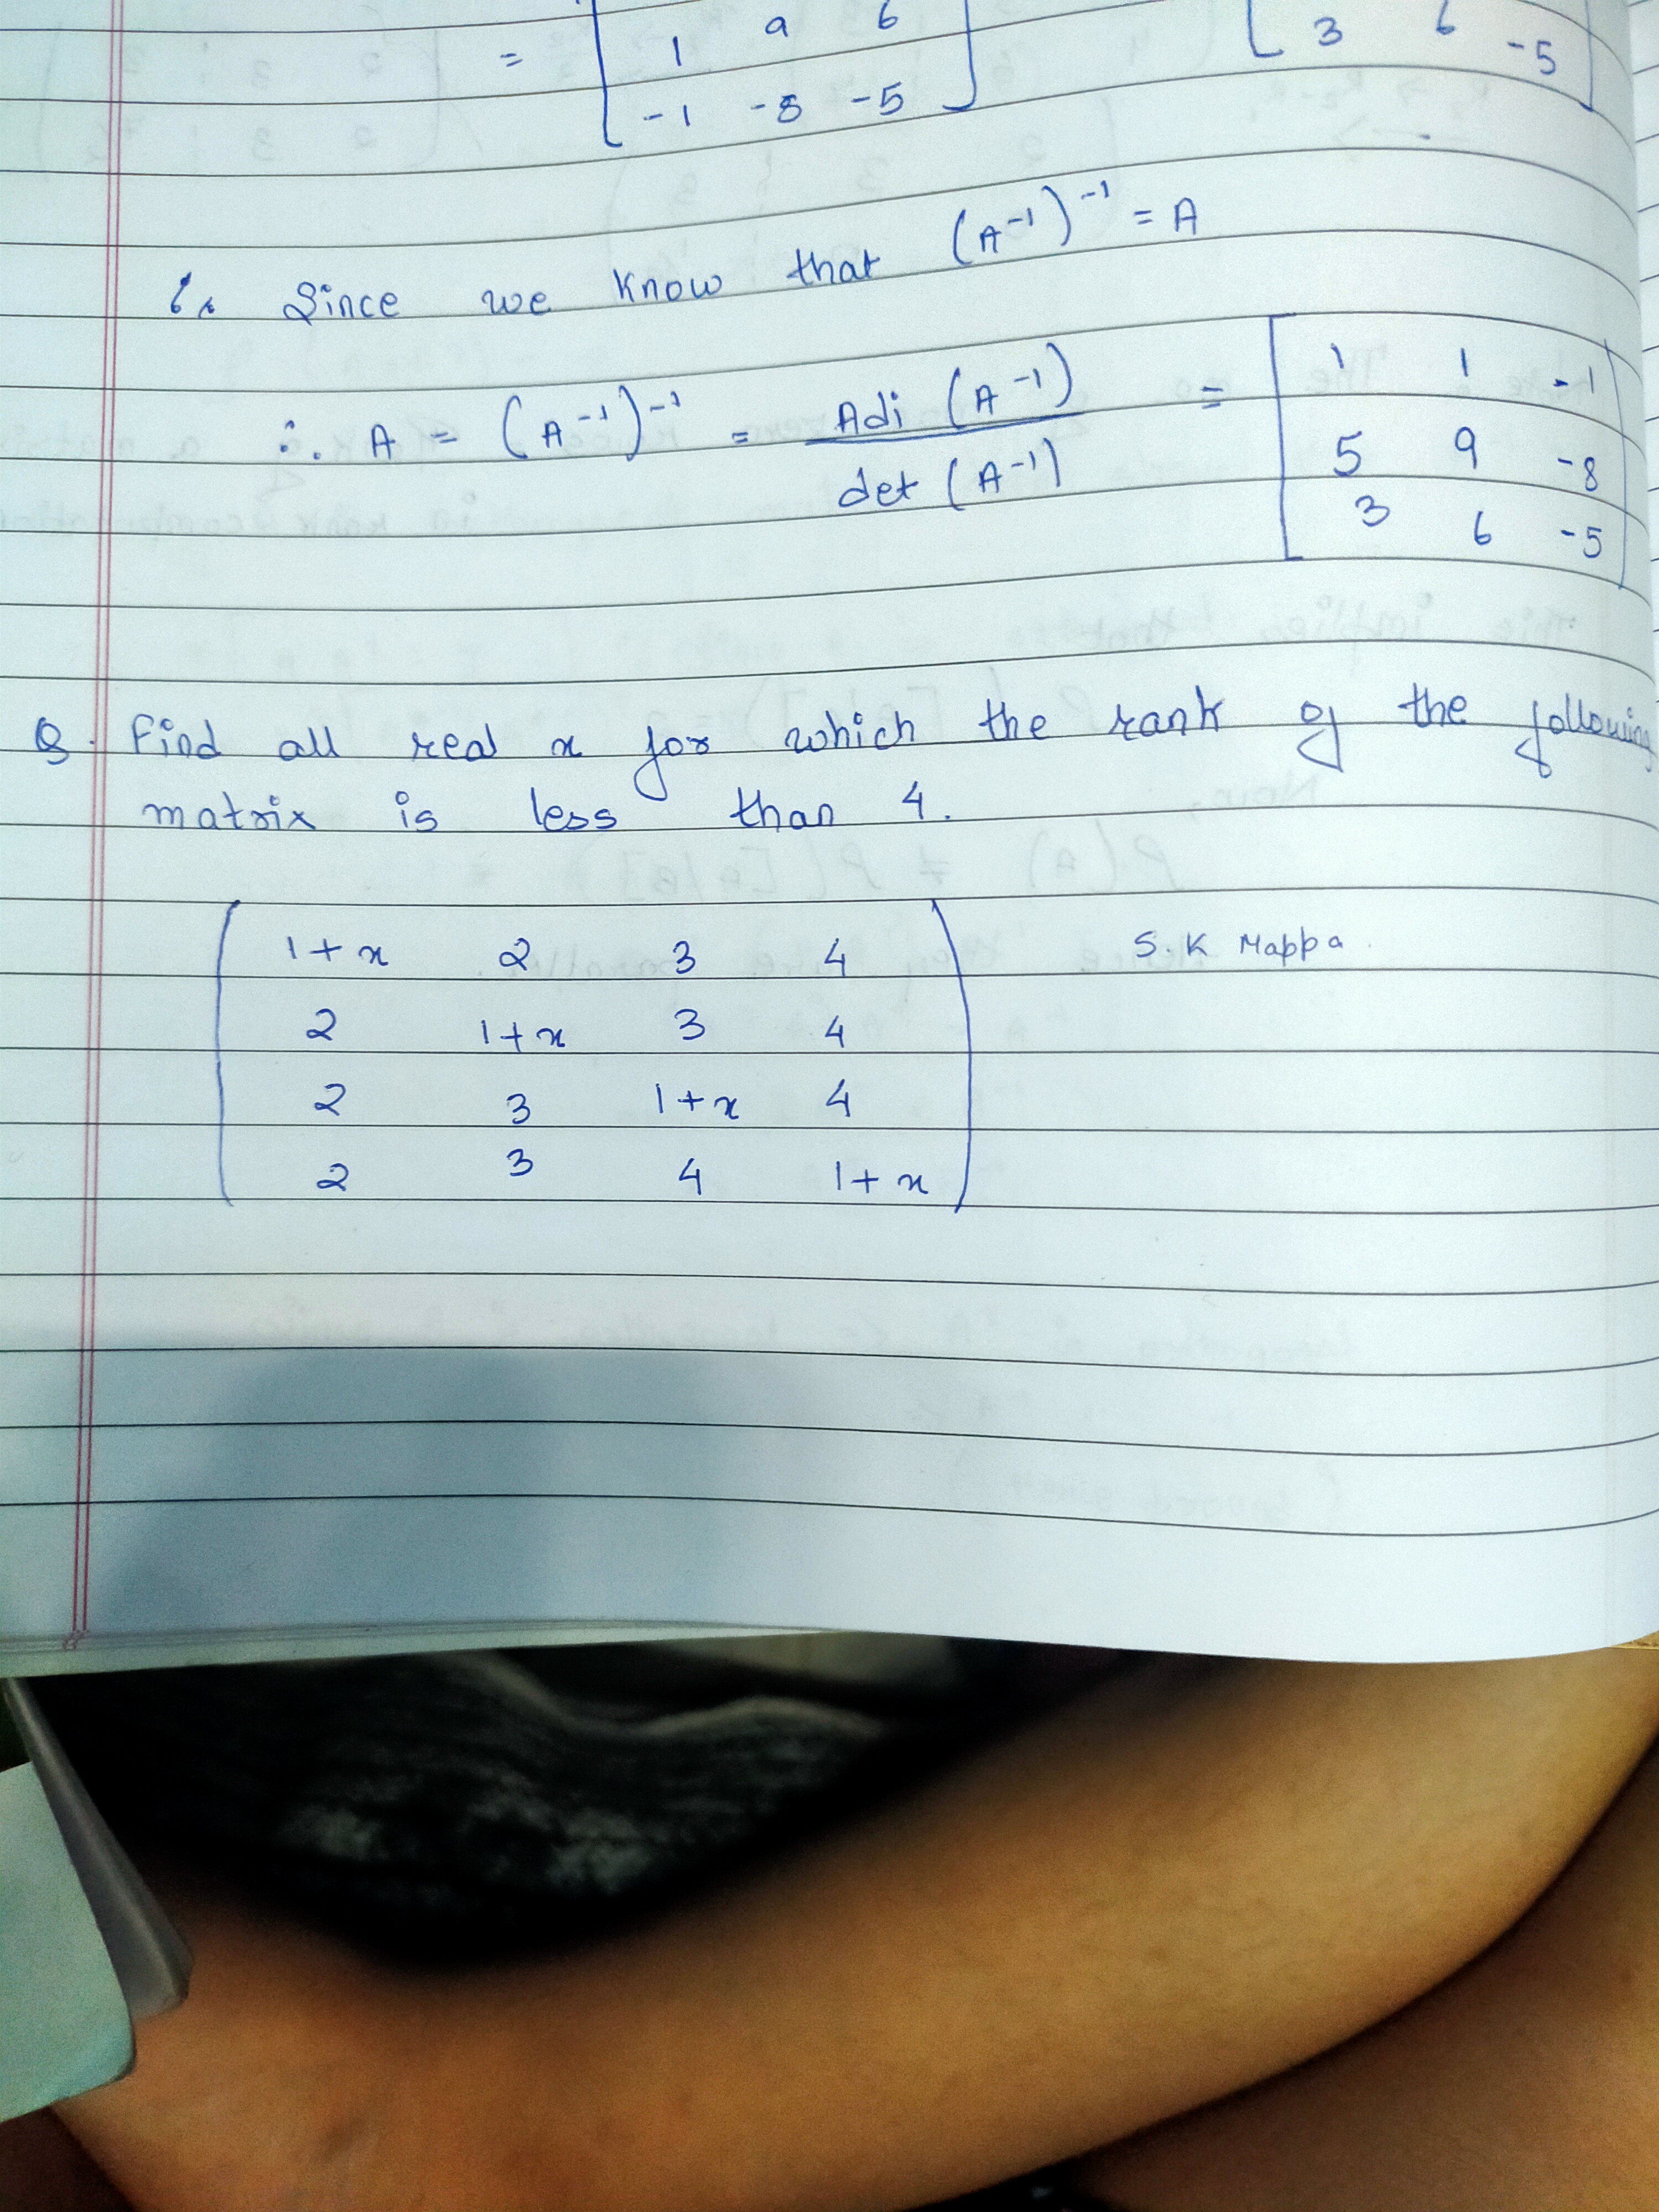 = [ 1 9 6
-1 -8 -5 ] [ 3 6 -5 ]
Since we know that (A⁻¹)⁻¹ = A
∴ A = (A⁻¹)⁻¹ = Adj (A⁻¹) / det (A⁻¹) = [ 1 1 -1
5 9 -8
3 6 -5 ]
Q. Find all real x for which the rank of the following
matrix is less than 4.
( 1+x 2 3 4 ) S.K Mappa
2 1+x 3 4
2 3 1+x 4
2 3 4 1+x